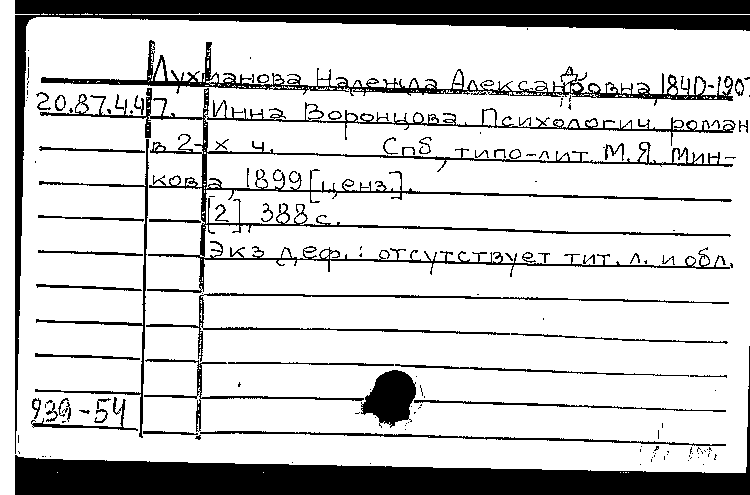 Лухманова, Надежда Александровна, 1840-1907
20.87.4.47. Инна Воронцова. Психологич. роман
в 2-х ч. Спб, типо-лит М.Я. Мин-
кова, 1899 [ценз.].
[2], 388 с.
Экз деф.: отсутствует тит. л. и обл.
939-54